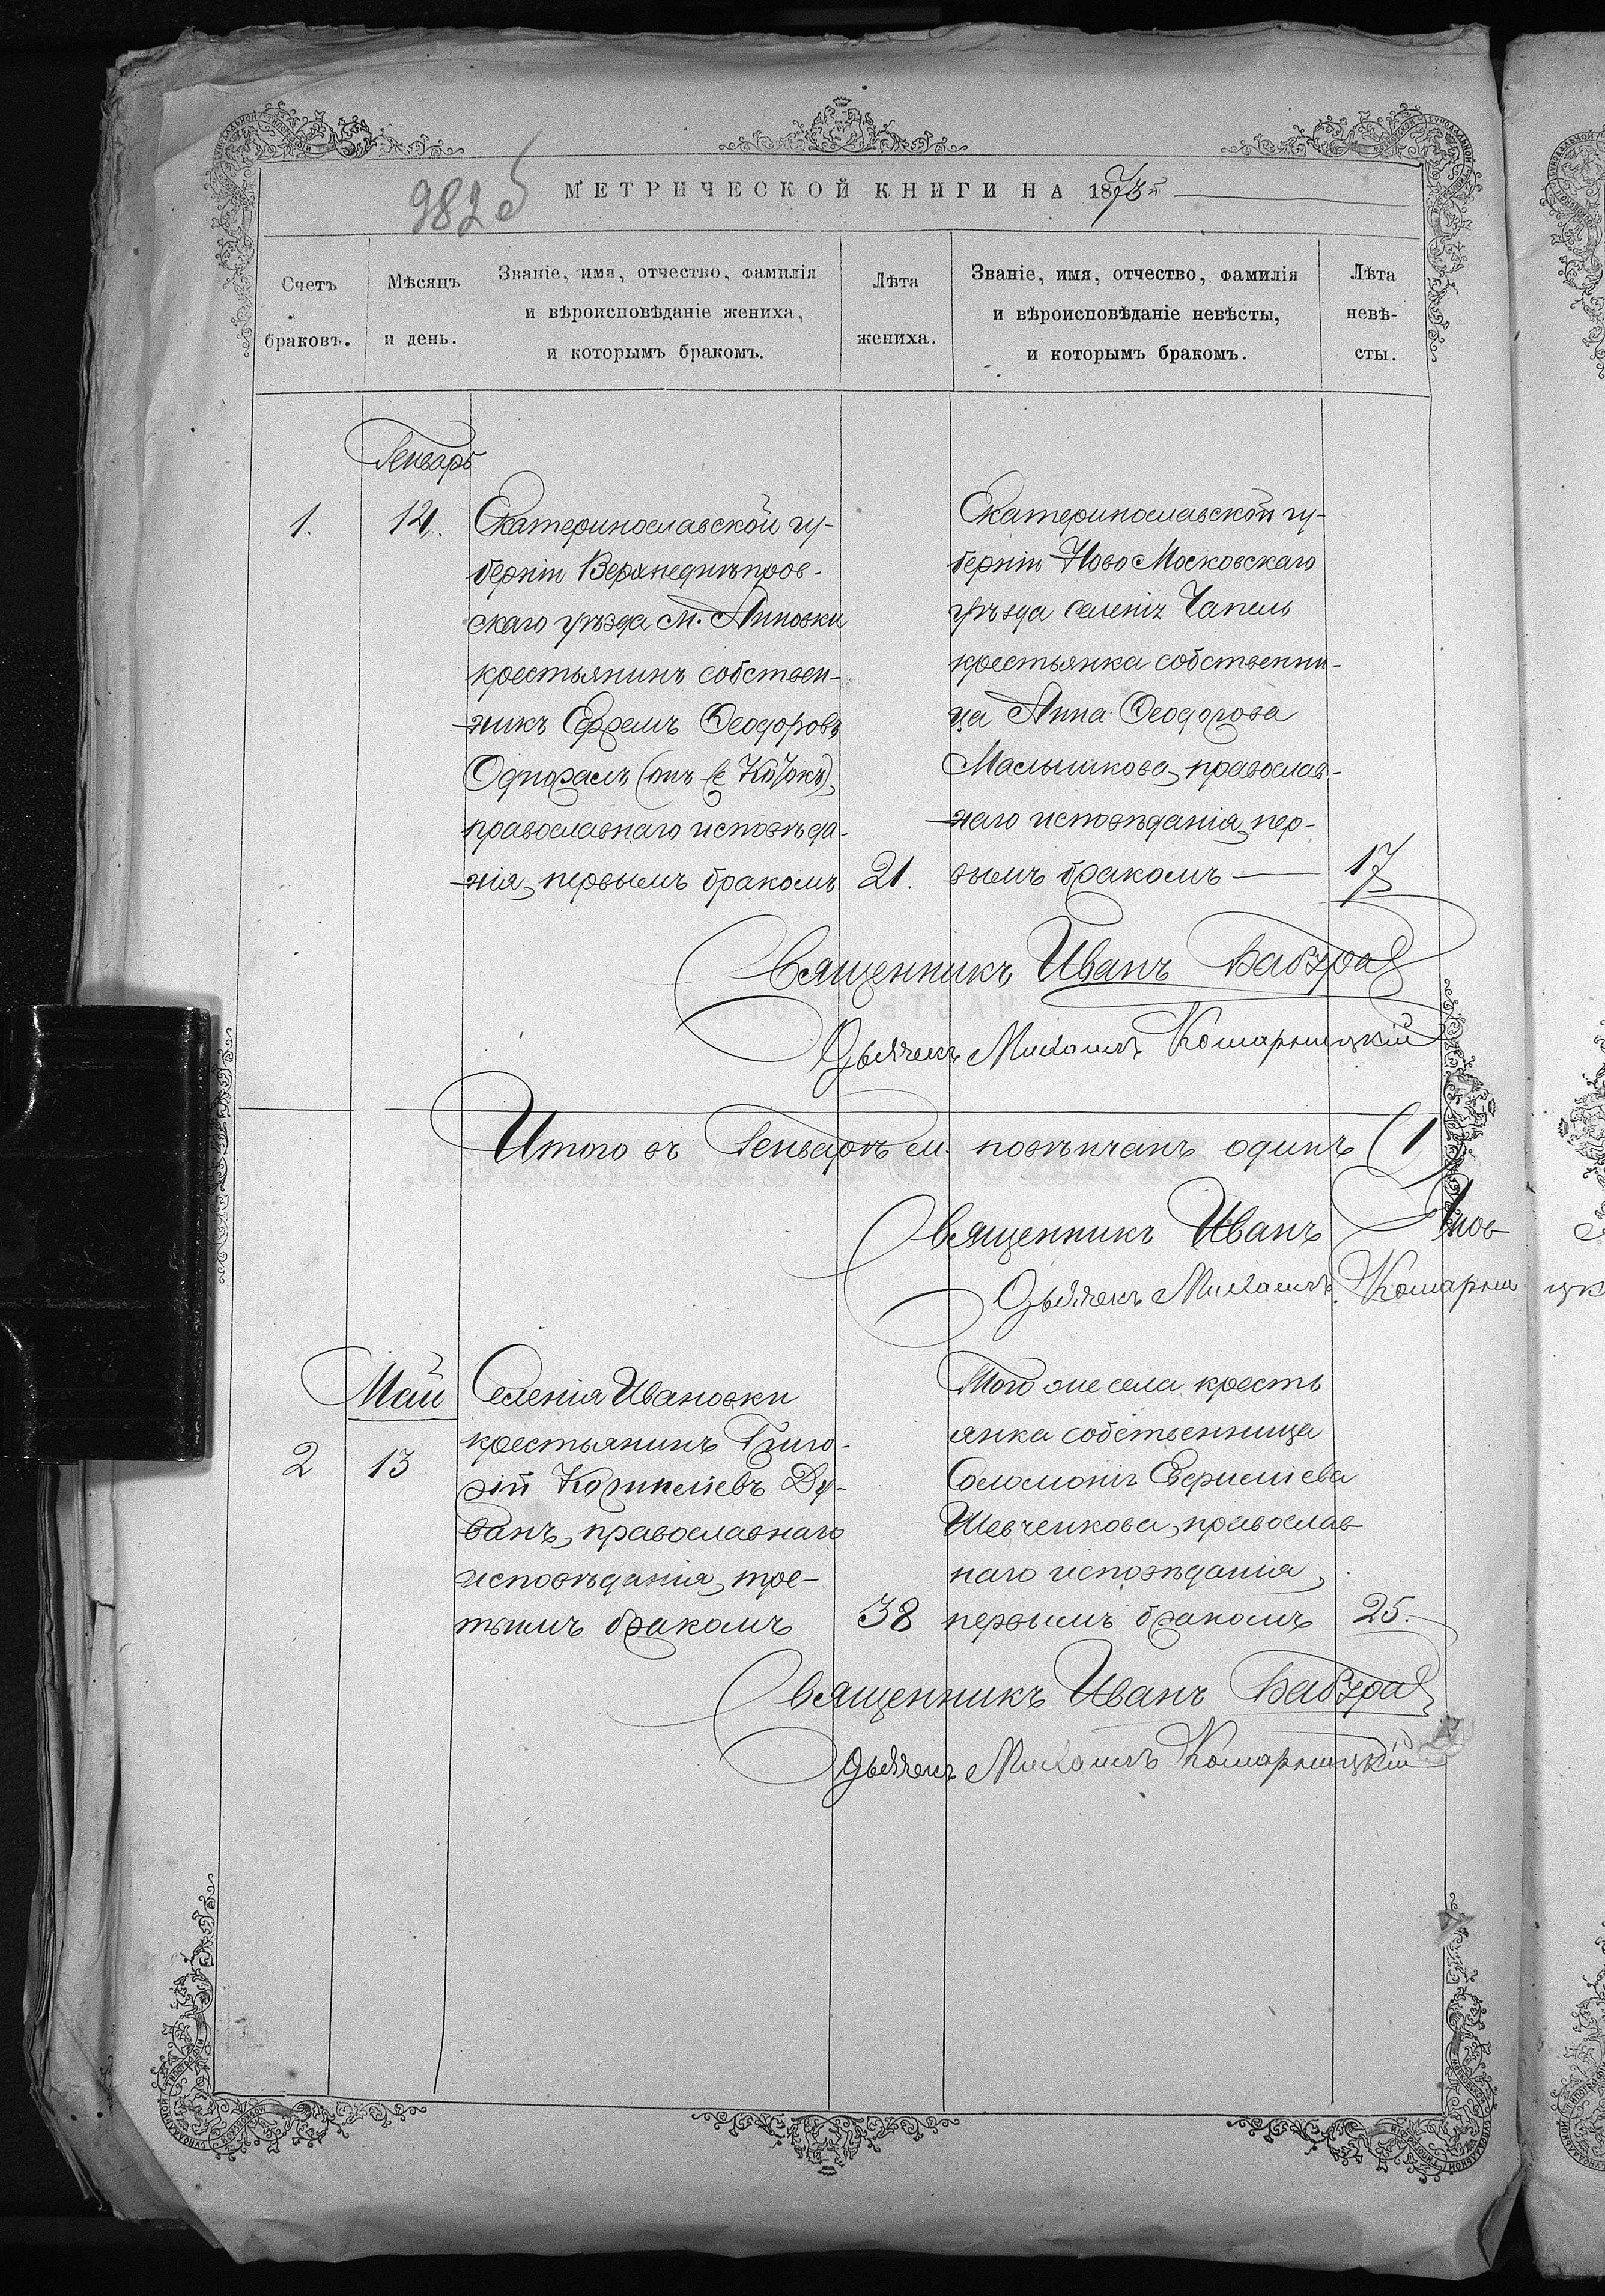 982 б
МЕТРИЧЕСКОЙ КНИГИ НА 1873й
Счетъ браковъ.
Мѣсяцъ и день.
Званіе, имя, отчество, фамилія
и вѣроисповѣданіе жениха,
и которымъ бракомъ.
Лѣта жениха.
Званіе, имя, отчество, фамилія
и вѣроисповѣданіе невѣсты,
и которымъ бракомъ.
Лѣта невѣ-
сты.
Генварь
1.
14.
Екатеринославской гу-
берніи Верхнеднѣпров-
скаго уѣзда м. Анновки
крестьянинъ собствен-
никъ Ефремъ Ѳеодоровъ
Одноралъ (онъ же
православнаго исповѣда-
нія, первымъ бракомъ
21.
Екатеринославской гу-
берніи Ново Московскаго
уѣзда селенія Чапель
крестьянка собственни-
ца Анна Ѳеодорова
Малышкова, православ-
наго исповѣданія, пер-
вымъ бракомъ
17
Священникъ Иванъ
Дьячекъ Михаилъ Комарницкій
Итого въ Генварѣ м. повѣнчанъ одинъ (1)
Священникъ Иванъ
Дьячекъ Михаилъ Комарницк
Май
2
13
Селенія Ивановки
крестьянинъ Григо-
рій Корниліевъ Ду-
банъ, православнаго
исповѣданія, тре-
тьимъ бракомъ
38
Того же села кресть
янка собственница
Соломонія
Шевченкова, православ
наго исповѣданія,
первымъ бракомъ
25.
Священникъ Иванъ
Дьячекъ Михаилъ Комарницкій